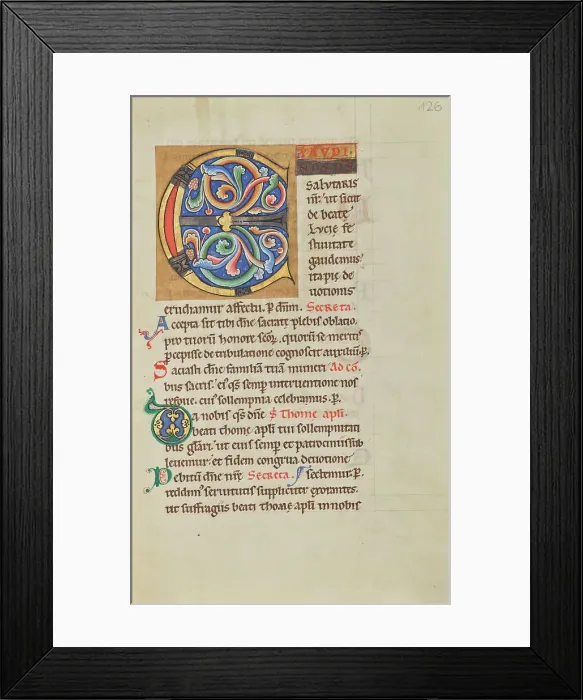 126
EXAUDI
Salutaris
nr̄. ut sicut
de beate
Lucie fe
stiuitate
gaudemus
ita pie de
uotionis
erudiamur affectu. P dn̄m. Secreta.
Accepta sit tibi dn̄e sacrate plebis oblatio.
pro tuorū honore scōꝝ. quorū se meritis
percepisse de tribulatione cognoscit auxiliū. P.
Saciasti dn̄e familiā tuā muneri Ad cō.
bus sacris. eiꝰ qs̄ semp interuentione nos
refoue. cuiꝰ sollempnia celebramus. P.
Da nobis qs̄ dn̄e S̄ Thome apłi.
beati thome apłi tui sollempnitati
bus głari. ut eius semp et patrociniis sub
leuemur. et fidem congrua deuotione
Debitū dn̄e nr̄e Secreta. sectemur. P.
reddimꝰ seruitutis suppliciter exorantes.
ut suffragiis beati thome apłi in nobis